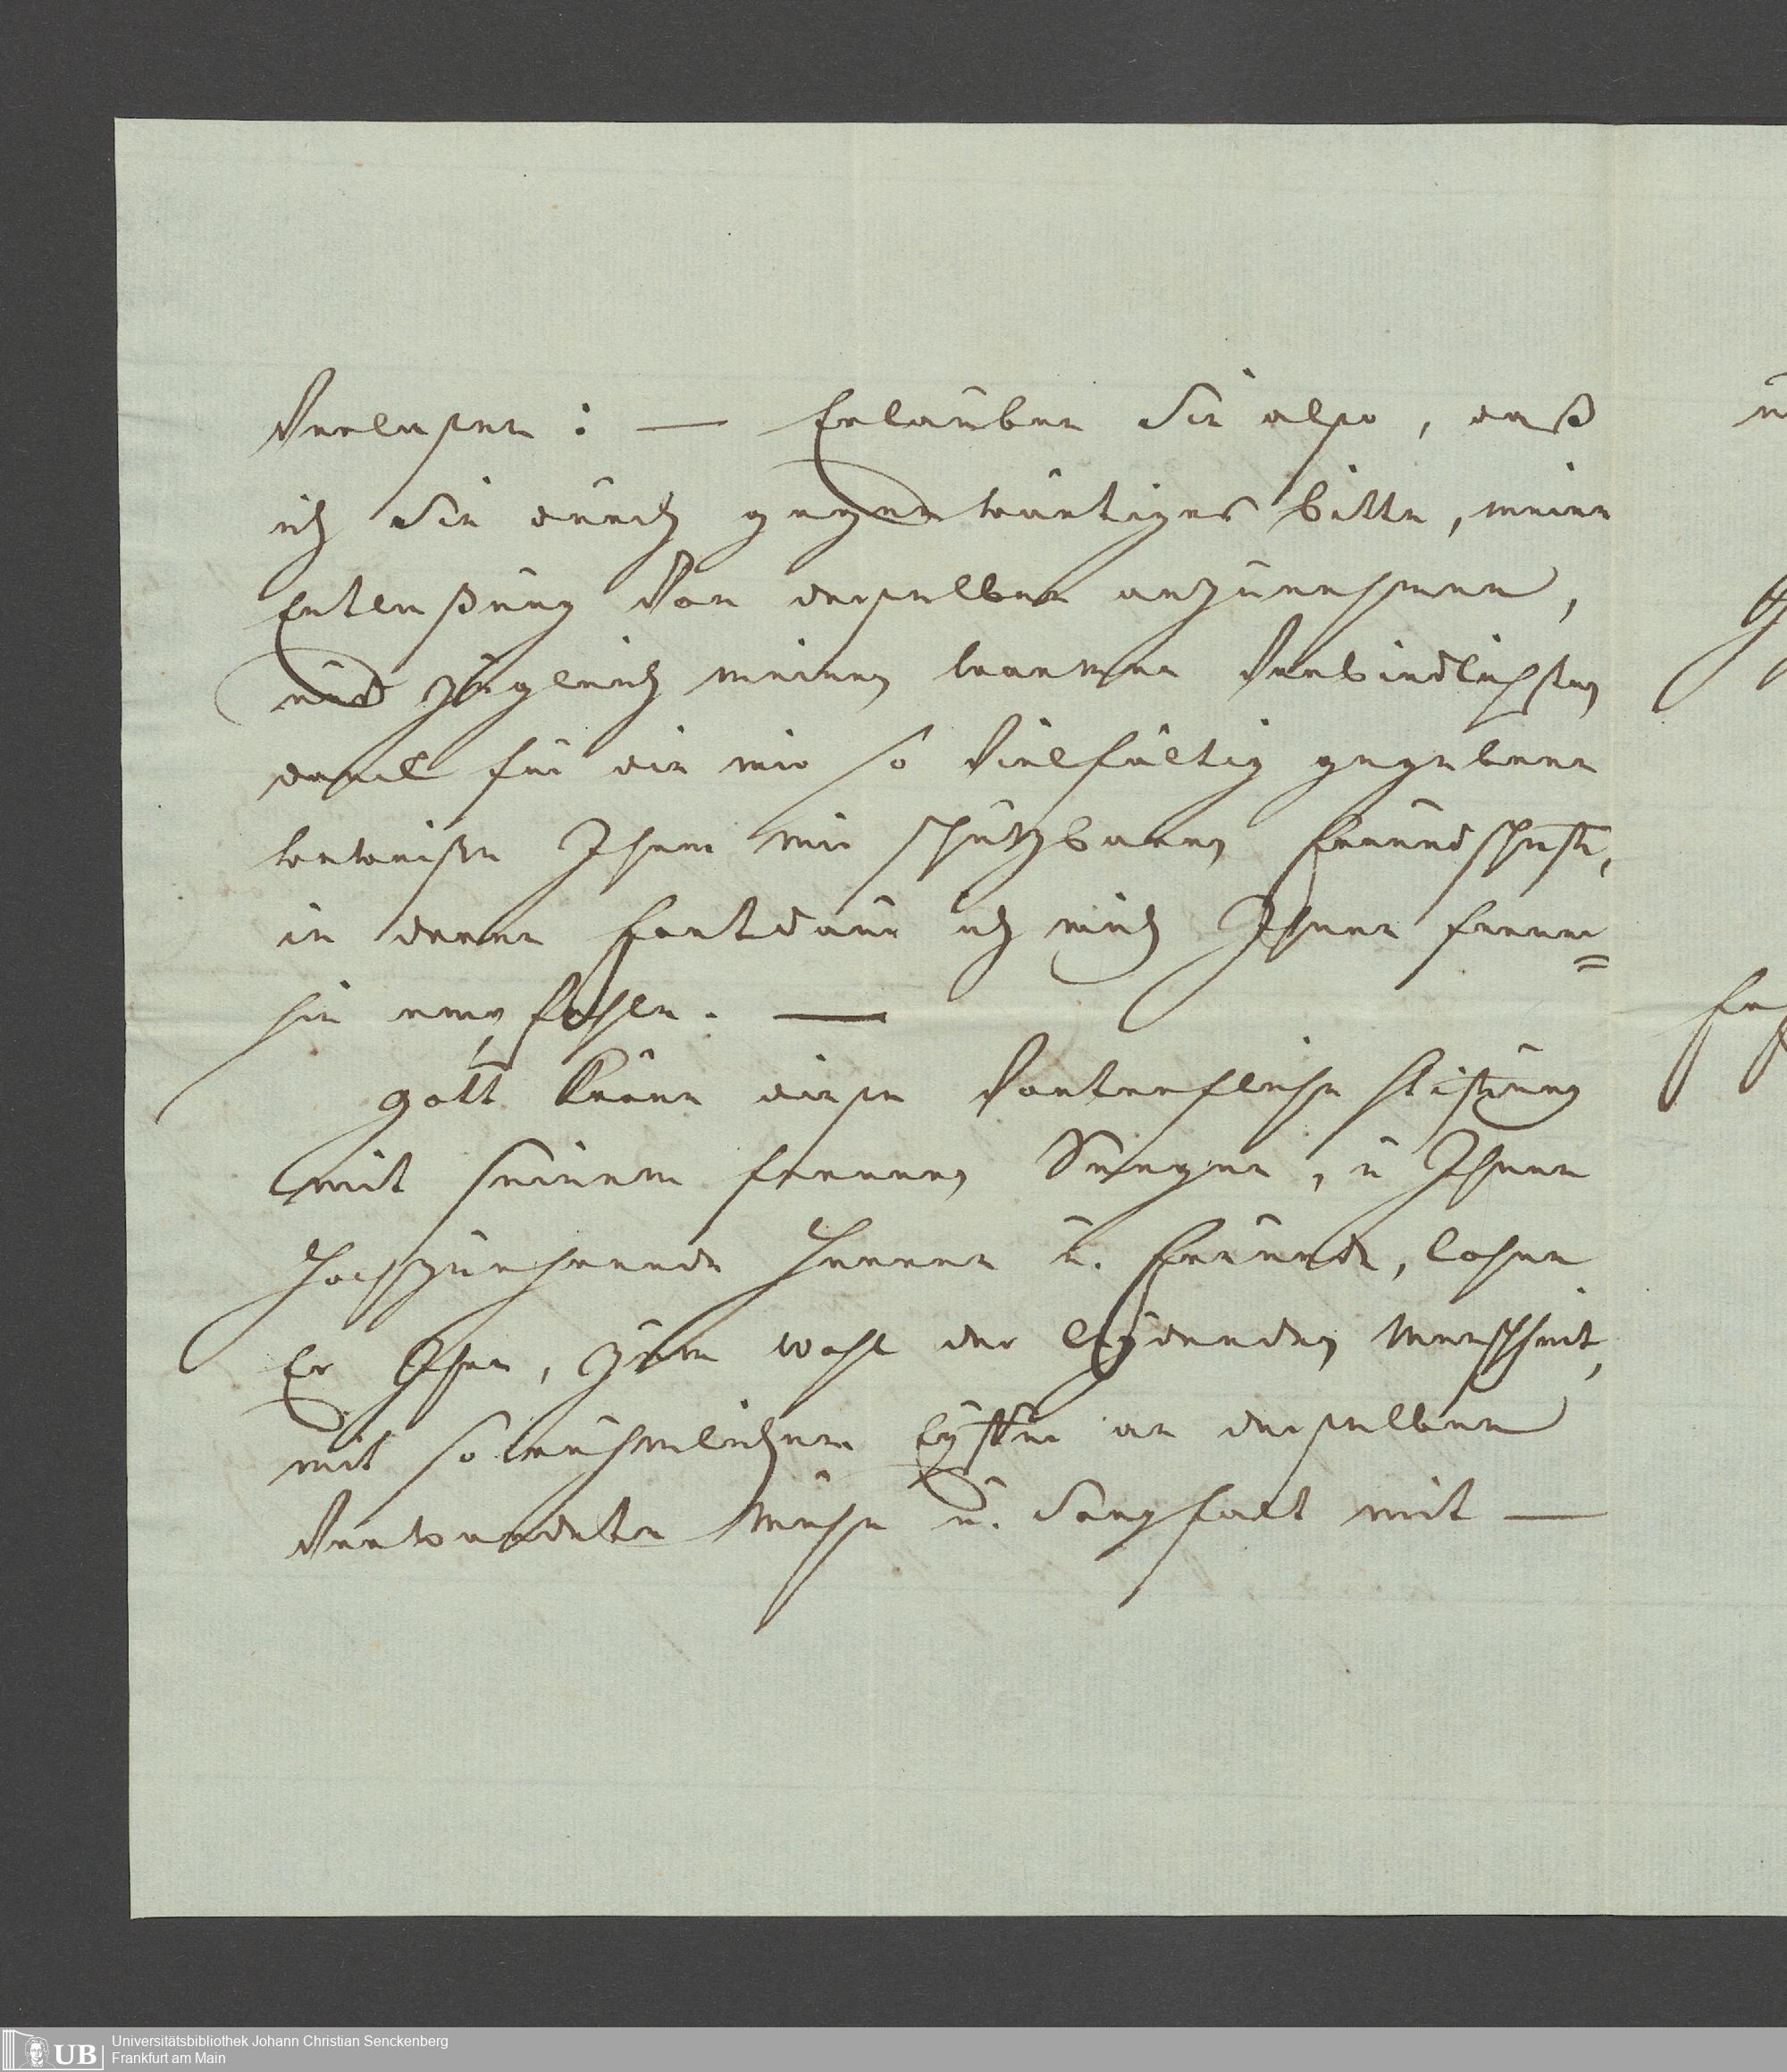 Verlasen: — Erlauben Sie also, daß
ich Sie durch gegenwärtiges bitte, meine
Entlaßung Von derselben anzunehmen,
und zugleich meinen warmen Verbindlichsten
danck für die mir so Vielfältig gegebene
beweise Ihrer mir schätzbaren Freundschaft,
in deren Fortdaur ich mich Ihnen ferner=
hin empfehle. —
Gott kröne diese Vortrefliche Stiftung
mit seinem fernern Seegen, u Ihnen
Hochzuehrende Herren u. Freunde, lohne
Er Ihre, zum wohl der leydenden Menschheit,
mit so rühmlichem Eyffer an derselben
Verwendete Mühe u. Sorgfalt mit —
Universitätsbibliothek Johann Christian Senckenberg
Frankfurt am Main
UB